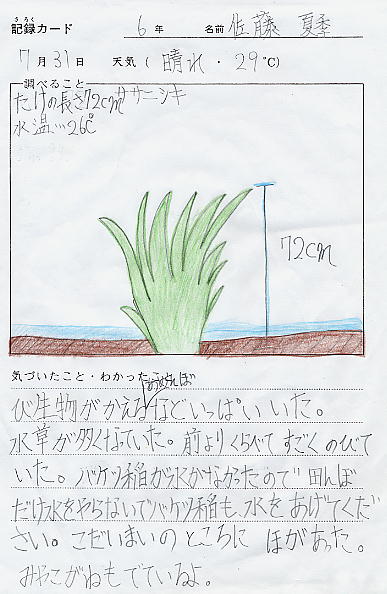 きろく
記録カード 6年 名前 佐藤 夏季
7月31日 天気（晴れ・29℃）
調べること
たけの長さ72cm ササニシキ
水温…26℃
72cm
気づいたこと・わかったこと
び生物がかえるなどいっぱいいた。
水草が多くなっていた。前よりくらべてすごくのびて
いた。バケツ稲が水がなかったので田んぼ
だけ水をやらないでバケツ稲も、水をあげてくだ
さい。こだいまいのところに ほがあった。
みやこがねもでているよ。